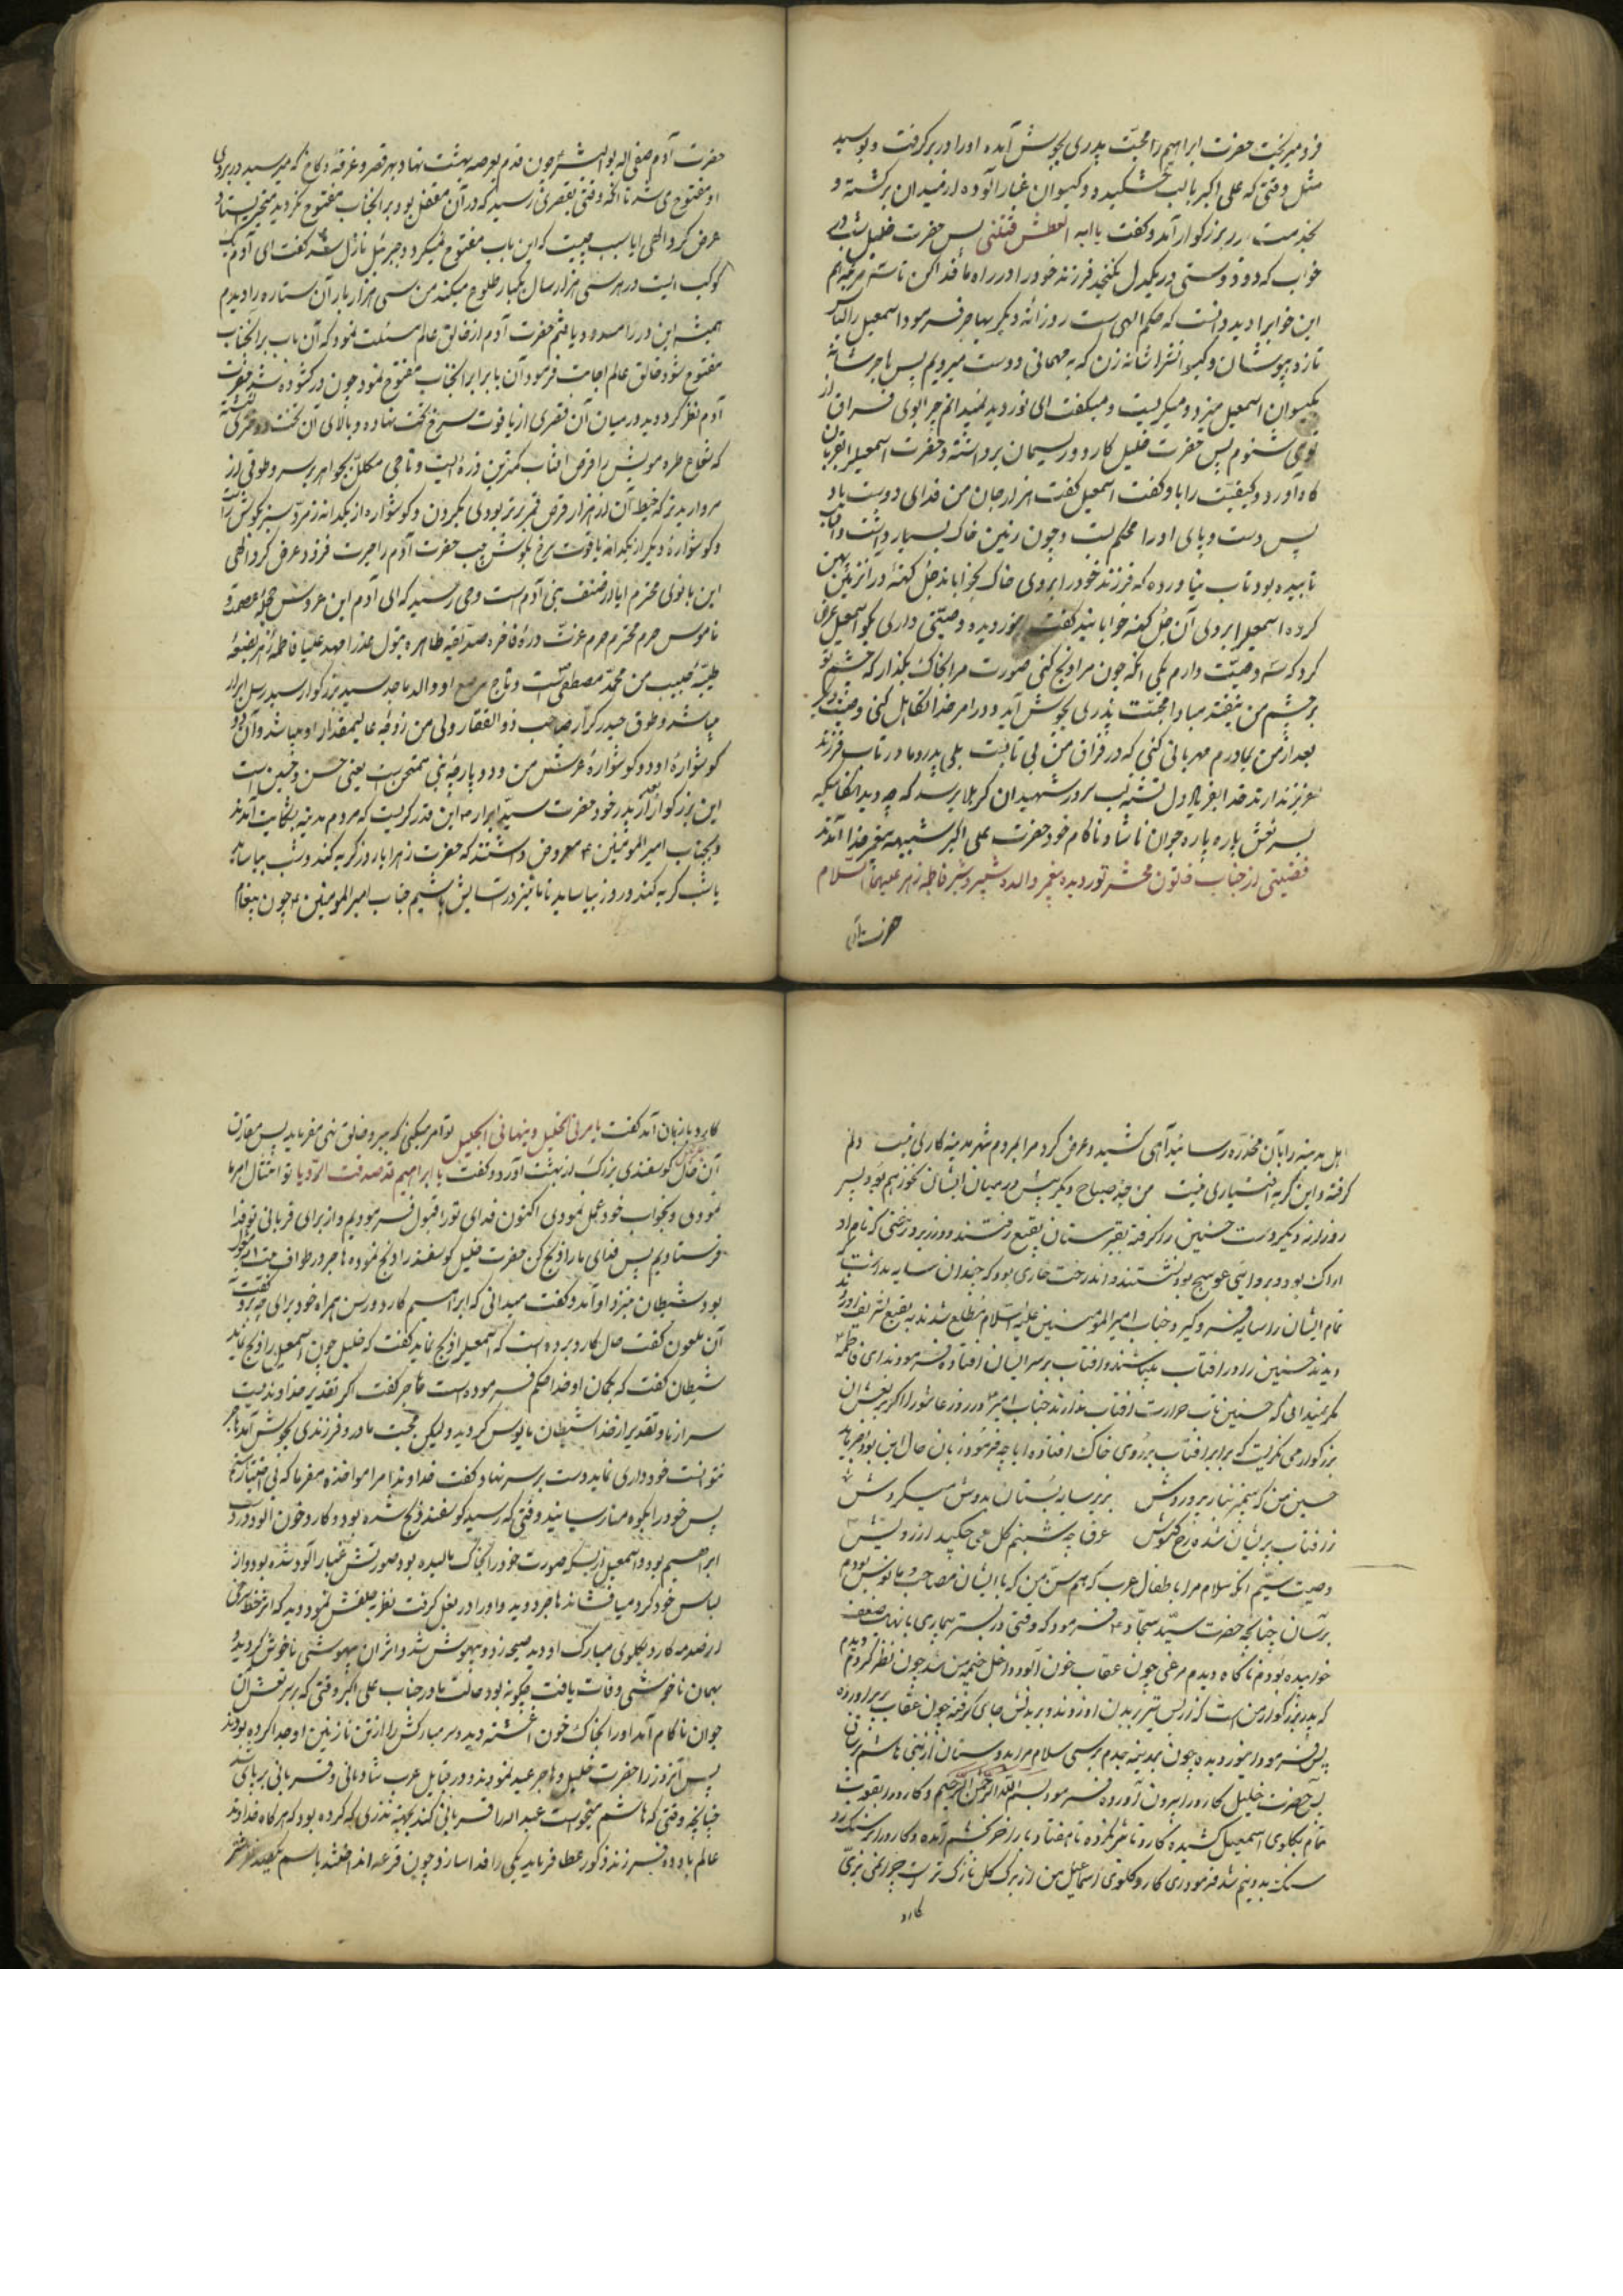 فرو میریخت حضرت ابراهیم را محبّت پدری بجوش آمده اورا در بر گرفت و بوسید
مثل وقتی که علی اکبر با لب خشکیده و کیسوان غبار آلوده از میدان برگشته و
بخدمت پدر بزرگوار آمد و گفت یا ابه العطش قتلنی پس حضرت خلیل شب در
خواب که دو دوستی در یکدل نکنجد فرزند خود را در راه ما فدا کن تا سه مرتبه هم
این خوابرا دید دانست که حکم الهی است روزانه دیگر بهاجر فرمود اسمعیل را لباس
تازه بپوشان و کیسوانشرا شانه زن که به مهمانی دوست میرویم پس هاجر شانه
بکیسوان اسمعیل میزد و میکریست و میکفت ای نور دیده نمیدانم چرا بوی فراق از
توی شنوم پس حضرت خلیل کارد و ریسمان برداشته و حضرت اسمعیل را بقربان
کاه آورد و کیفیّت را باو کفت اسمعیل کفت هزار جان من فدای دوست باد
پس دست و پای اورا محکم بست و چون زمین خاک بسیار داشت و آفتاب
تابیده بود تاب نیاورده که فرزند خود را بروی خاک بخواباند جُل کهنه در آنزمین پهن
کرده اسمعیل را بروی آن جُل کهنه خوابانید کفت ای نور دیده وصیّتی داری بکو اسمعیل عرض
کرد که سه وصیّت دارم یکی انکه چون مرا ذبح کنی صورت مرا بخاک بکذار که چشم تو
بر چشم من نیفتد مبادا محبّت پدری بجوش آید و در امر خدا تکاهل کنی وصیّت دیگر
بعد از من بمادرم مهربانی کنی که در فراق من بی تابست بلی پدر و مادر تاب فرزند
عزیز ندارند خدا بفریاد دل تشنه لب سرور شهیدان کربلا برسد که چه دید انکامیکه
بسر نعش پاره پاره جوان ناشاد ناکام خود حضرت علی اکبر شبیه پیغمبر خدا آمدند
فضیلتی از جناب خاتون محشر نور دیده پیغمبر والده شبیر و شبر فاطمه زهرا علیهما السلام
حضرت آدم
حضرت آدم صفی اله ابوالبشر چون قدم بعرصه بهشت نهاد بهر قصر و غرفه و کاخ که میرسید در بروی
او مفتوح می شد تا آنکه وقتی بقصری رسید که در آن مقفل بود بر آنجناب مفتوح نکردید متحیر بیستاد
عرض کرد الهی ایا سبب چیست که این باب مفتوح نمیکردد جبرئیل نازل شد گفت ای آدم یک
کوکب است در هر سی هزار سال یکبار طلوع میکند من سی هزار بار آن ستاره را دیدم
همیشه این در را مسدود یافتم حضرت آدم از خالق عالم مسئلت نمود که آن باب بر آنجناب
مفتوح شود خالق عالم اجابت فرمود آن باب برابر آنجناب مفتوح نمود چون در کشوده شد حضرت
آدم نظر کرد دید در میان آن قصری از یاقوت سرخ تخت نهاده و بالای آن تخت دختری نشسته
که شعاع طره مویش را قرص افتاب کمترین ذره ایست و تاجی مکلّل بجواهر بر سر و طوقی از
مروارید تر که ضیاء آن از هزار قرص قمر برتر بود در کردن و کوشواره از یکدانه زمرّد سبز بکوش راست
و کوشواره دیکر از یکدانه یاقوت سرخ بکوش چپ حضرت آدم را حیرت فزود عرض کرد الهی
این بانوی محترم ایا از صنف بنی آدم است وحی رسید که ای آدم این عروس حجله عصمت و
ناموس حرم محترم حرم عزّت درّه فاخره صدّیقه طاهره بتول عذرا مهد علیا فاطمه زهرا بضعه
طیّبه حبیب من محمّد مصطفی است و تاج مرصع او والد ماجد سید بزرکوار سید رسل ابرار
میباشد و طوق حیدر کرّار صاحب ذوالفقار ولی من زوج عالیمقدار او میباشد و آن دو
کوشواره او دو کوشواره عرش من و دو پارچه بنی ممتحن است یعنی حسن و حسین است
این بزرکوار بعد از پدر خود حضرت سیّد ابرار ص این قدر کریست که مردم مدینه بشکایت آمدند
و بجناب امیر المومنین ع معروض داشتند که حضرت زهرا یا روز کریه کند و شب بیاساید
یا شب کریه کند و روز بیاساید تا ما نیز در آسایش باشیم جناب امیر المومنین ع چون پیغام
اهل مدینه را بآن مخدّره رسانید آهی کشید و عرض کرد مرا بمردم شهر مدینه کاری نیست دلم
کرفته و این کریه اختیاری نیست من چند صباح دیکر بیش در میان ایشان نخواهم بود پس
روزانه دیکر دست حسنین را کرفته بقبرستان بقیع رفتند و در زیر درختی که نام او
اراک بود و بروایتی عوسج بود نشستند و اندرخت خاری بود که چندان سایه نداشت که
تمام ایشان را سایه فرو کیرد جناب امیرالمومنین علیه السّلام مطلع شدند به بقیع تشریف آوردند
دیدند حسنین را در افتاب میباشند و افتاب بر سر ایشان افتاده فرمودند ای فاطمه
مکر نمیدانی که حسنین تاب حرارت افتاب ندارند جناب امیر ع در روز عاشورا اکر بر نعش آن
بزرکوار می نکریست که برابر افتاب بر روی خاک افتاده ایا چه فرمود زبان حال این بود
حسین من که پیمبر بناز پروردش بزیر سایه بستان بدوش میکردش
ز افتاب پریشان شده رخ نکویش عرق چه شبنم کل می چکید از رویش
وصیت سیّم انکه سلام مرا باطفال عرب که هم سنّ من که با ایشان مصاحب و مانوس بودم
برسان چنانچه حضرت سیّد سجّاد ع فرمود که وقتی در بستر بیماری با نهایت ضعف
خوابیده بودم ناکاه دیدم مرغی چون عقاب خون آلوده داخل خیمه من شد چون نظر کردم دیدم
که پدر بزرکوار من است که از بس تیر بر بدن او زده‌اند و بر بدنش جای کرفته چون عقاب پر برآورده
پس فرمود ای نور دیده چون بمدینه جدم برسی سلام مرا بدوستان از بنی هاشم برسان
پس حضرت خلیل کارد را بیرون آورده فرمود بسم الله الرّحمن الرّحیم و کارد را بقوت
تمام بکلوی اسمعیل کشیده کارد تاثیر نکرده تا هفتاد بار آخر بخشم آمده و کارد را بر سنک زد
سنک بدو نیم شد فرمود ای کارد کلوی اسماعیل من از برک کل نازک تر است چرا نمی بری
کارد
کارد بزبان آمد گفت یامرنی الخلیل و ینهانی الجلیل تو امر میکنی که ببر و خالق نهی میفرماید پس مقارن
آن حال جبرئیل کوسفندی بزرک از بهشت آورد و کفت یا ابراهیم قد صدقت الرّویا تو امتثال امر ما
نمودی و بخواب خود عمل نمودی اکنون فدای تو را قبول فرمودیم و از برای قربانی تو فدا
فرستادیم پس فدای ما را ذبح کن حضرت خلیل کوسفند را ذبح نموده هاجر در طواف بیت
بود شیطان بنزد او آمد و کفت میدانی که ابراهیم کارد و رسن همراه خود برای چه برد کفت نه
آن ملعون کفت حال کارد برده است که اسمعیل را ذبح نماید کفت که خلیل چون اسمعیل را ذبح نماید
شیطان کفت که بکمان او خدا حکم فرموده است هاجر کفت اکر تقدیر خداوندیست
سر از باد تقدیر از خدا شیطان مایوس کردید و لیکن محبّت مادر و فرزندی بجوش آمد هاجر
نتوانست خود داری نماید دست بر سر نهاد کفت خداوندا مرا مواخذه مفرما که بی اختیار شدم
پس خود را بکوه منا رسانید وقتی که رسید کوسفند ذبح شده بود و کارد خون آلود در دست
ابراهیم بود و اسمعیل از بسکه صورت خود را بخاک مالیده بود صورتش غبار آلود شده بود و از
لباس خود کرد میافشاند هاجر دوید و او را در بغل کرفت نظر بحلقش نمود دید که اثر خط سرخی
از صدمه کارد بکلوی مبارک او دید صیحه زد و بیهوش شد و از آن بیهوشی ناخوش کردید و
بهمان ناخوشی وفات یافت چکونه بود حالت مادر جناب علی اکبر وقتی که بر سر نعش آن
جوان ناکام آمد او را بخاک خون آغشته دید و سر مبارکش را از تن نازنین او جدا کرده بودند
پس آنروز را حضرت خلیل و هاجر عید نمودند و در قبایل عرب شادمانی و قربانی برپا شد
چنانچه وقتی که هاشم میخواست عبد اله را قربانی کند بجهة نذری که کرده بود که هرکاه خداوند
عالم باو ده فرزند ذکور عطا فرماید یکی را فدا سازد و چون قرعه انداختند باسم